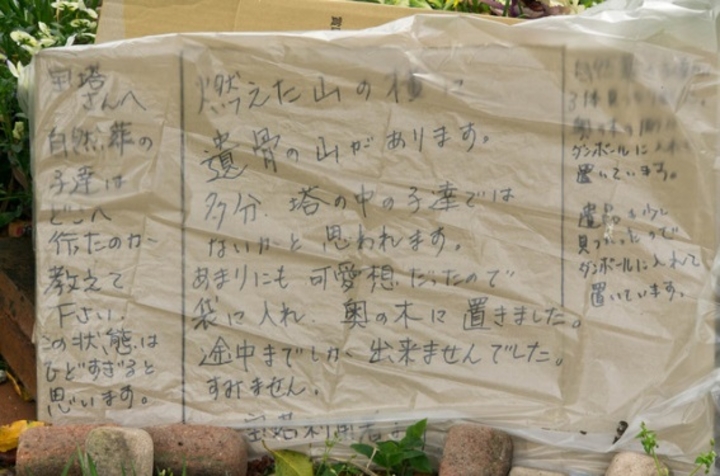 宝塔
さんへ
自然葬の
子達は
どこへ
行ったのか
教えて
下さい。
この状態は
ひどすぎると
思います。
燃えた山の に
遺骨の山があります。
多分、塔の中の子達では
ないかと思われます。
あまりにも可愛想だったので
袋に入れ、奥の木に置きました。
途中までしか出来ませんでした。
すみません。
宝塔利用者より
3体
奥の木の
ダンボールに
置いています。
遺品も少し
見つかったので
ダンボールに入れて
置いています。